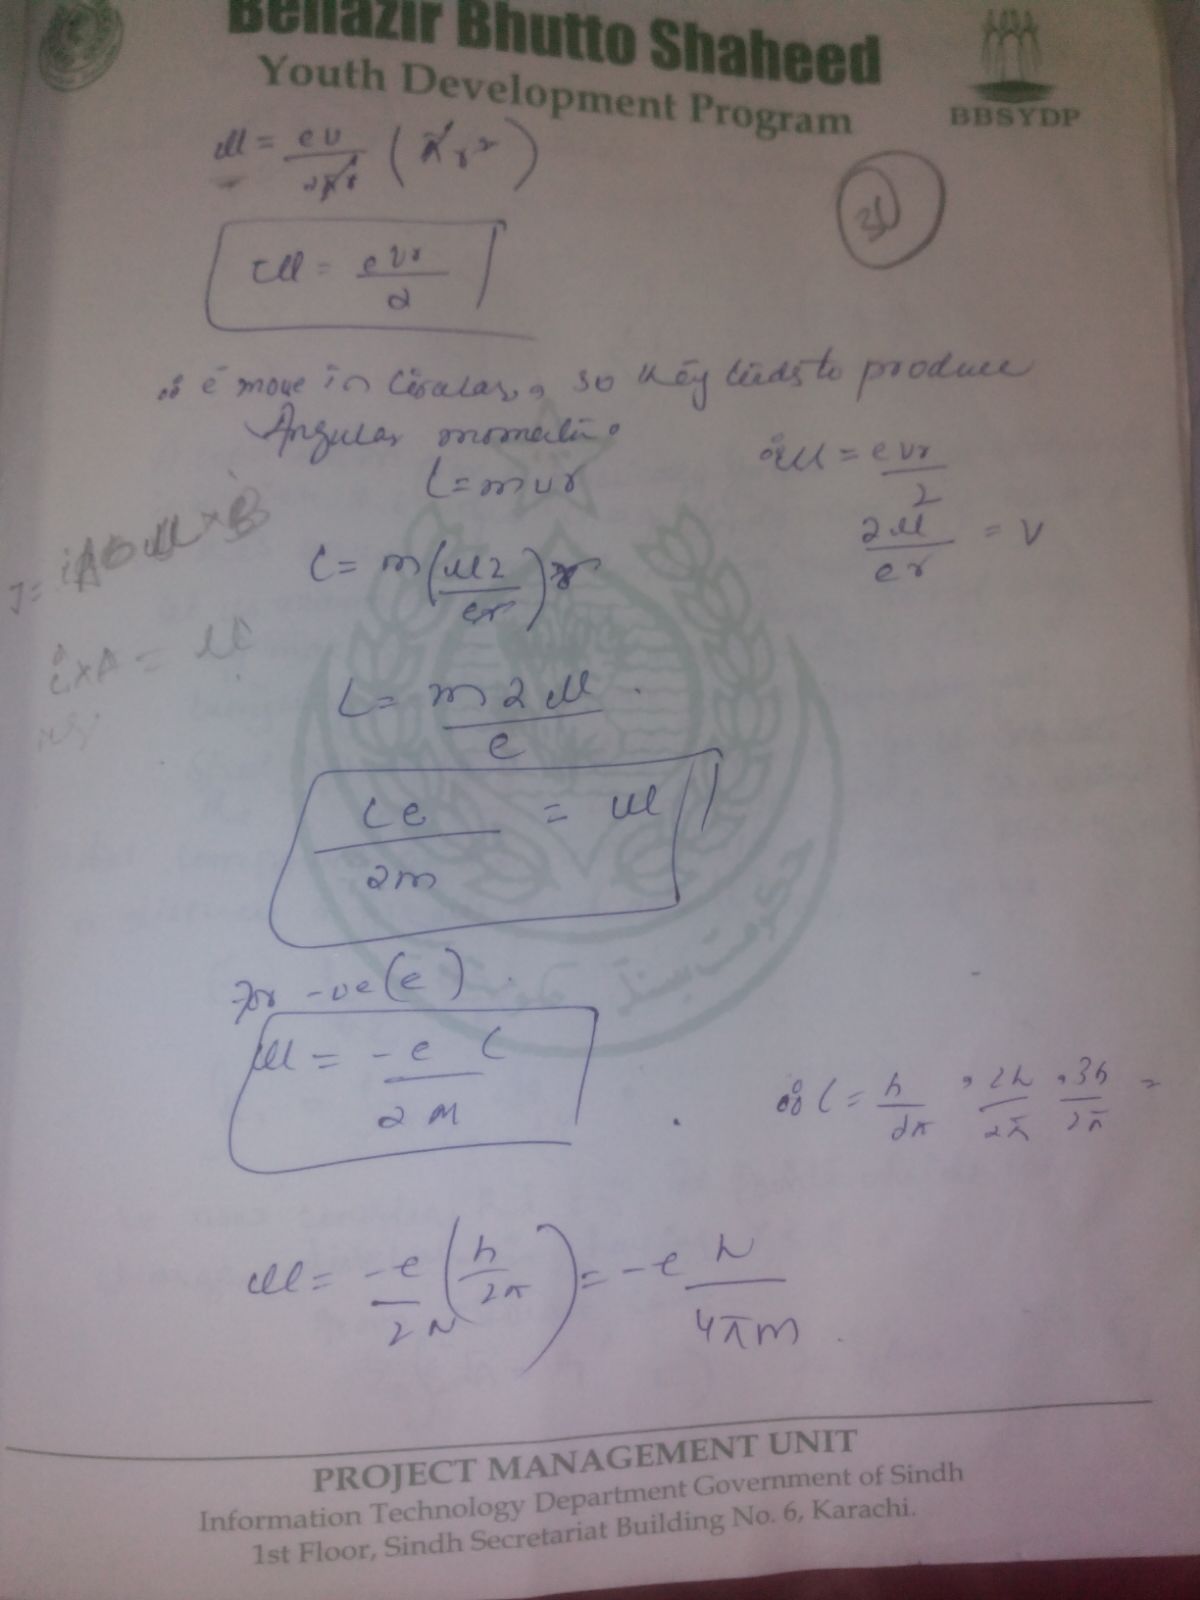 Benazir Bhutto Shaheed
Youth Development Program
BBSYDP
μ = ev / 2πr (πr²)
μ = evr / 2
∴ e move in circular, so they tends to produce
Angular
L = mvr
∴ μ = evr / 2
2μ / er = v
L = m(μ2 / er)r
L = m2μ / e
Le / 2m = μ
i × A = μ
For -ve(e)
μ = -e L / 2m
∴ L = h/2π, 2h/2π, 3h/2π
μ = -e/2m (h/2π) = -e h / 4πm
حکومت سندھ
PROJECT MANAGEMENT UNIT
Information Technology Department Government of Sindh
1st Floor, Sindh Secretariat Building No. 6, Karachi.